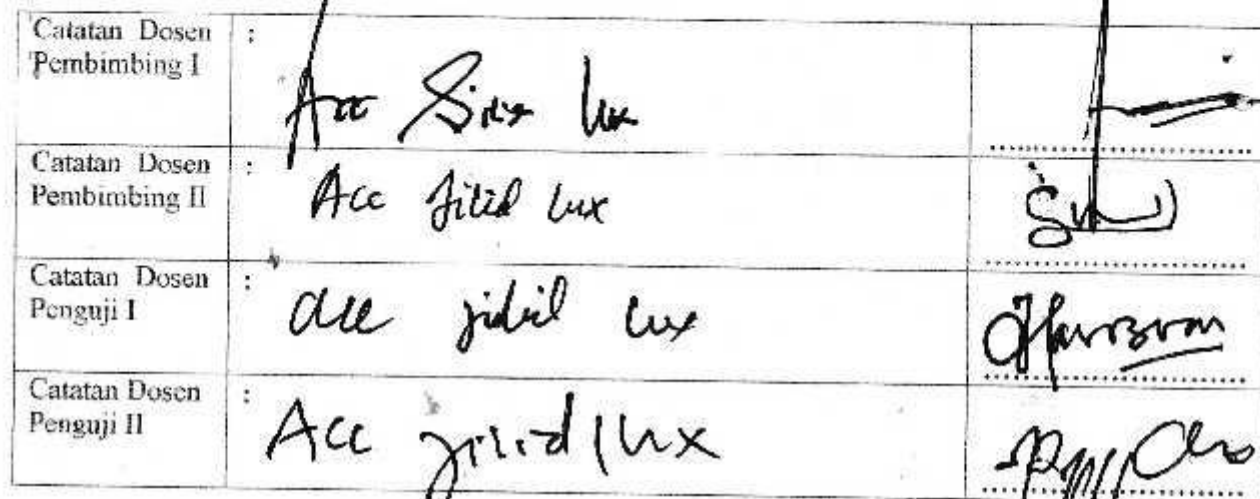 Catatan Dosen : 
Pembimbing I
Acc Jilid lux
Catatan Dosen :
Pembimbing II
Acc Jilid lux
Catatan Dosen :
Penguji I
acc jilid lux
Catatan Dosen :
Penguji II
Acc jilid lux